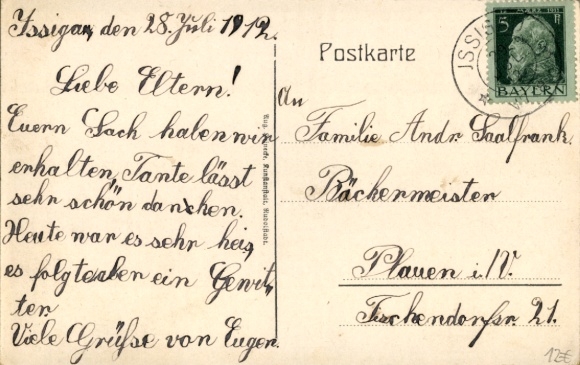 Issigau, den 28. Juli 1912.
Liebe Eltern!
Euern Sach haben wir
erhalten, Tante lässt
sehr schön dancken.
Heute war es sehr heis,
es folgte aber ein Gewit,
ter
Viele Grüße von Eugen.
Postkarte
An
Familie Andr. Saalfrank
Bäckermeister
Plauen i./V.
Fischendorfsr. 21.
ISSI
5 Pf
1911
BAYERN
Kunstanstalt, Rudolstadt.
12€